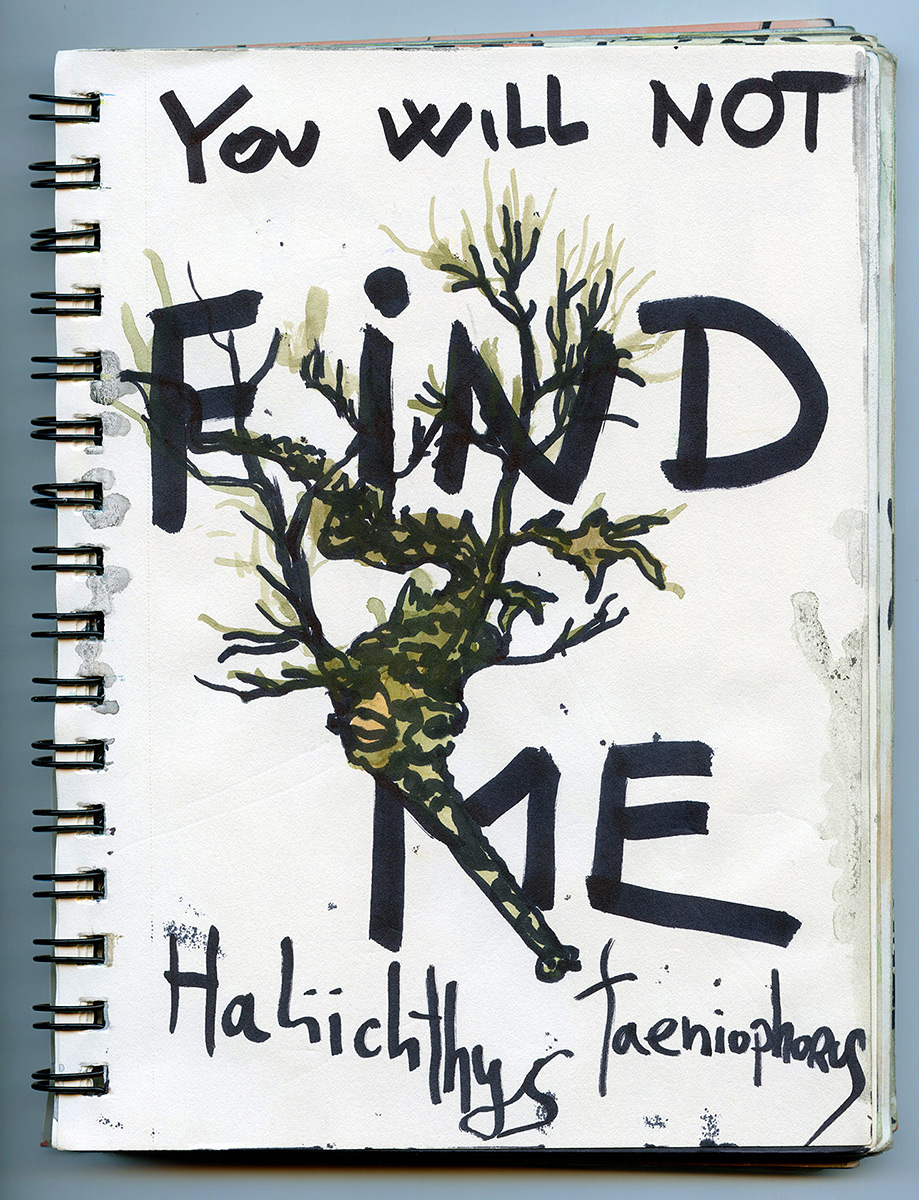 You WiLL NOT
FiND
ME
Haliichthys taeniophorus